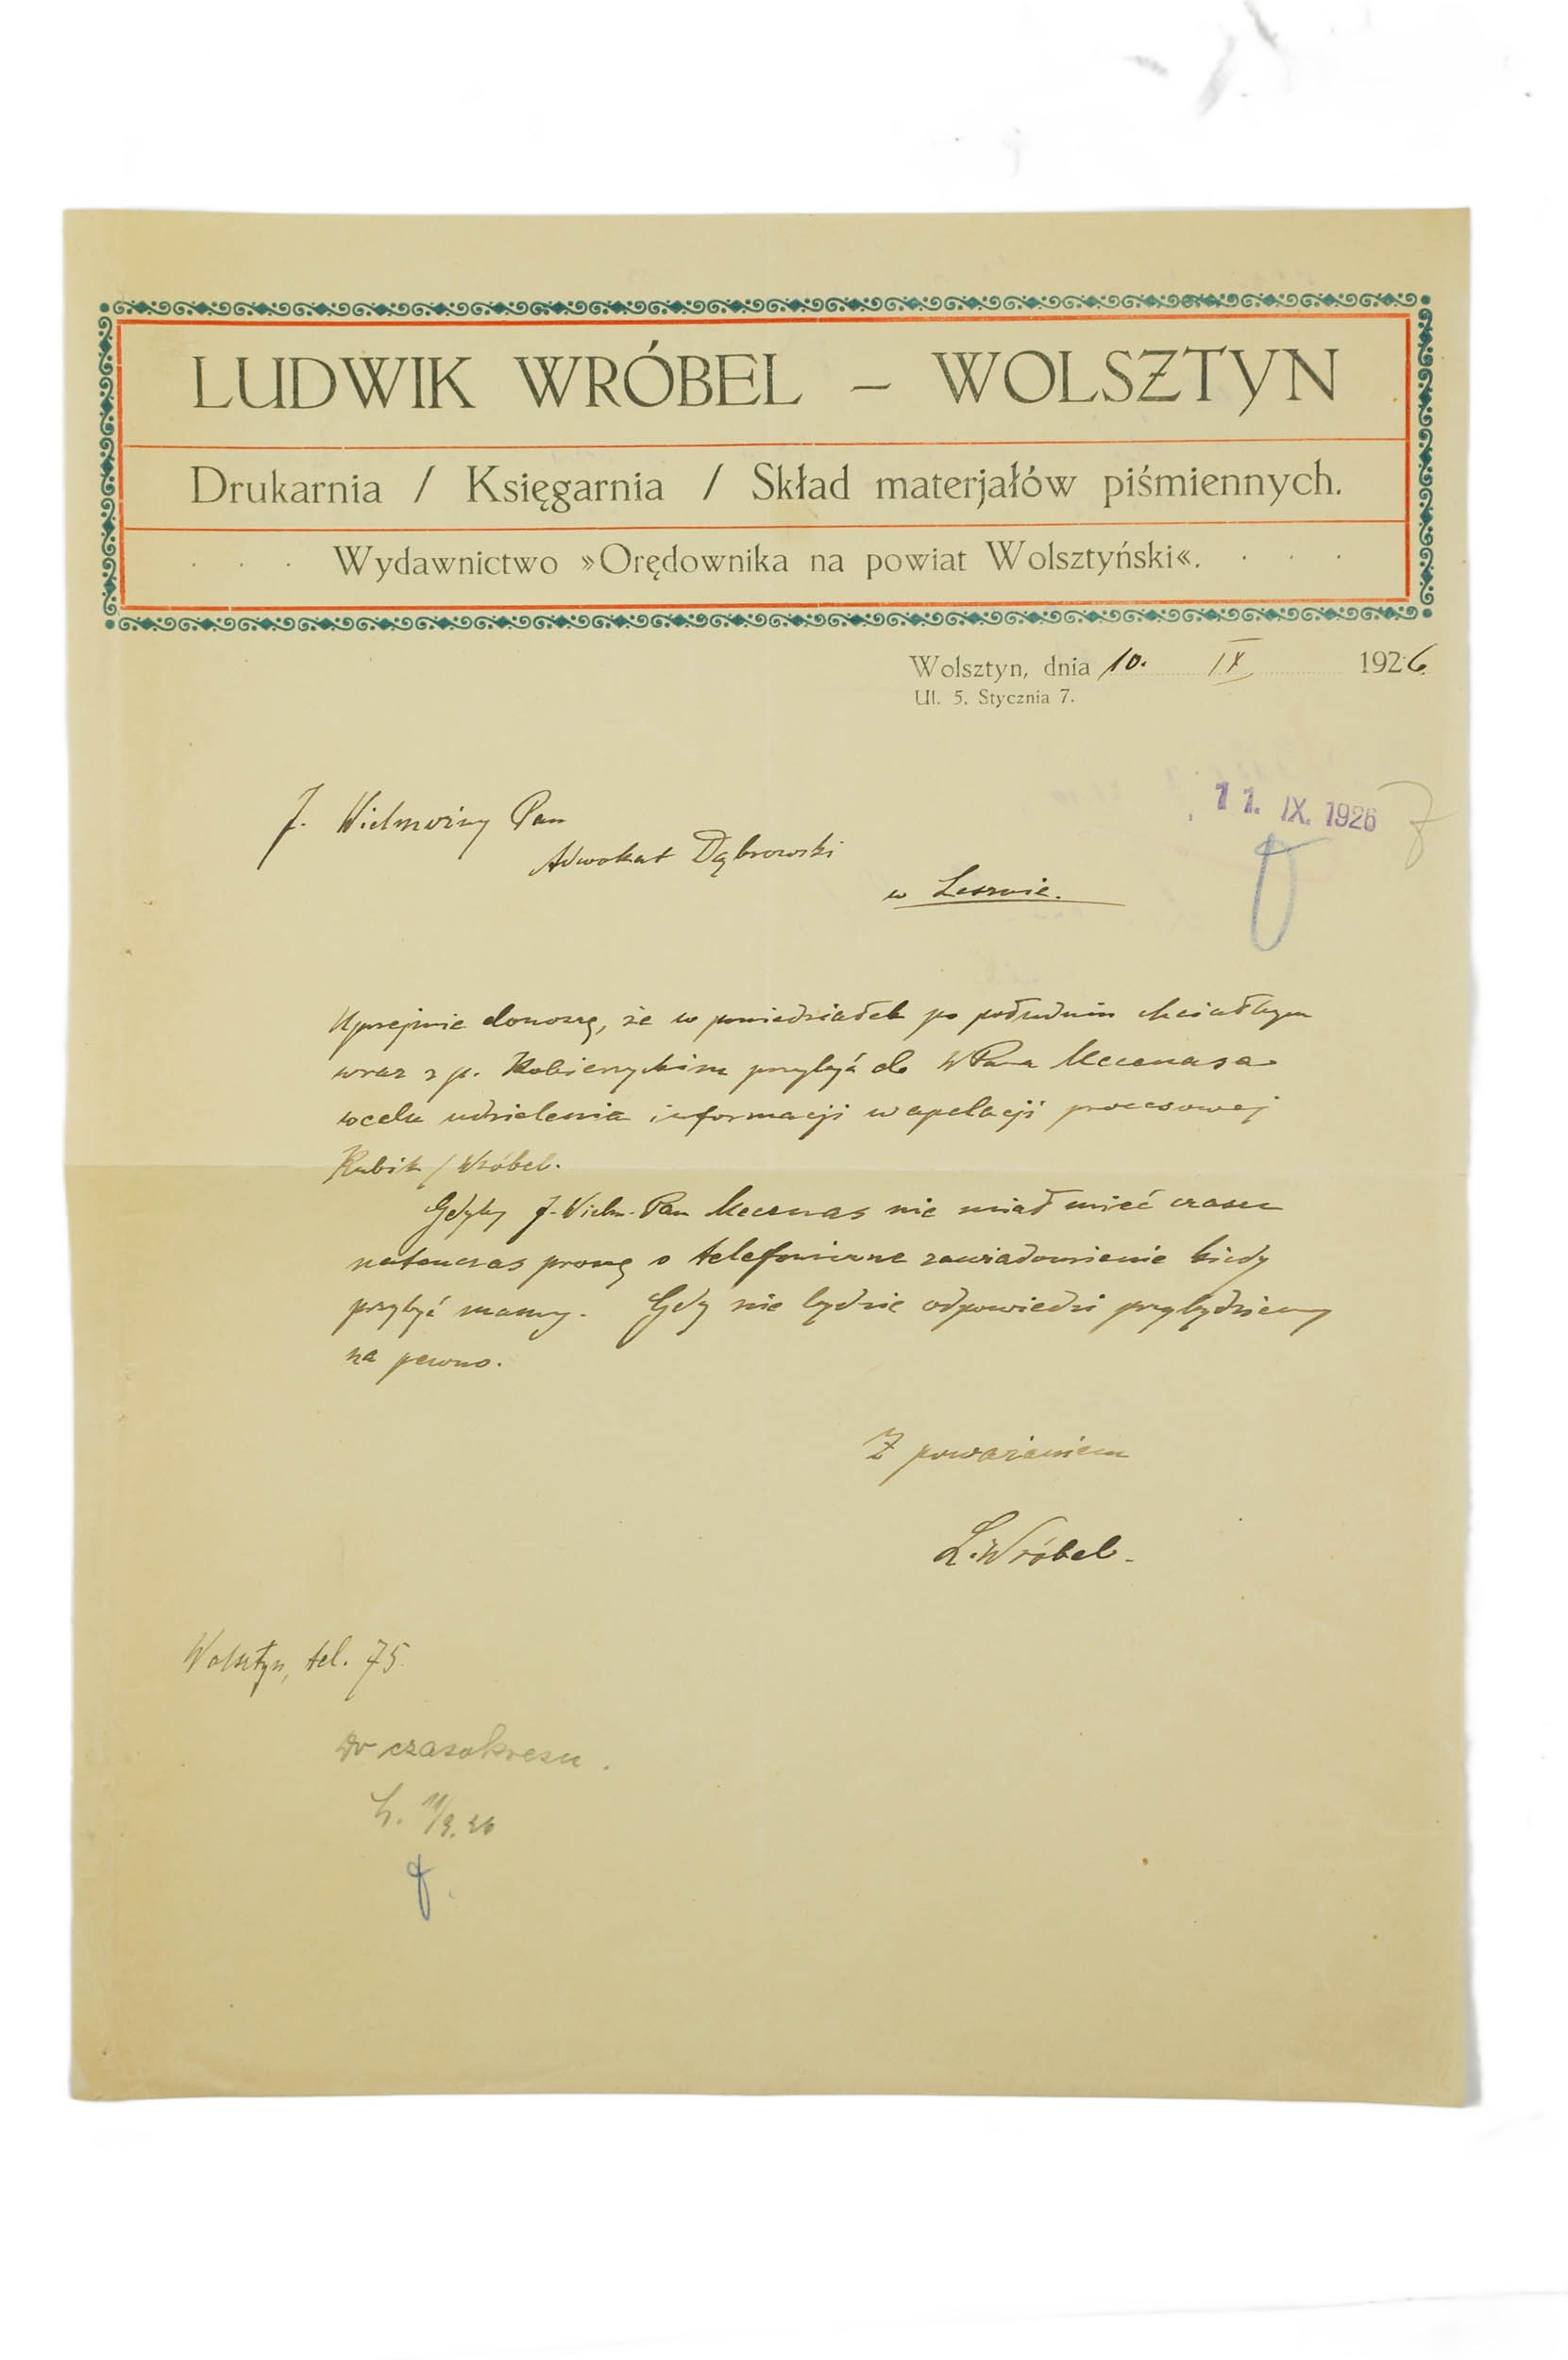 LUDWIK WRÓBEL – WOLSZTYN
Drukarnia / Księgarnia / Skład materjałów piśmiennych.
· · · Wydawnictwo »Orędownika na powiat Wolsztyński«. · · ·
Wolsztyn, dnia 10. IX 1926
Ul. 5. Stycznia 7.
11. IX. 1926
J. Wielmożny Pan
Adwokat Dąbrowski
w Lesznie.
Uprejmie donoszę, że w poniedziałek po południu chciałbym
wraz z p. przybyć do WPana Mecenasa
w celu udzielenia informacji w apelacji procesowej
Kubik / Wróbel.
Gdyby J. Wielm. Pan Mecenas nie miał mieć czasu
natenczas proszę o telefoniczne zawiadomienie kiedy
przybyć mamy. Gdy nie będzie odpowiedzi przybędziemy
na pewno.
Z poważaniem
L. Wróbel.
Wolsztyn, tel. 75
Do czasokresu.
L. 11/9.26